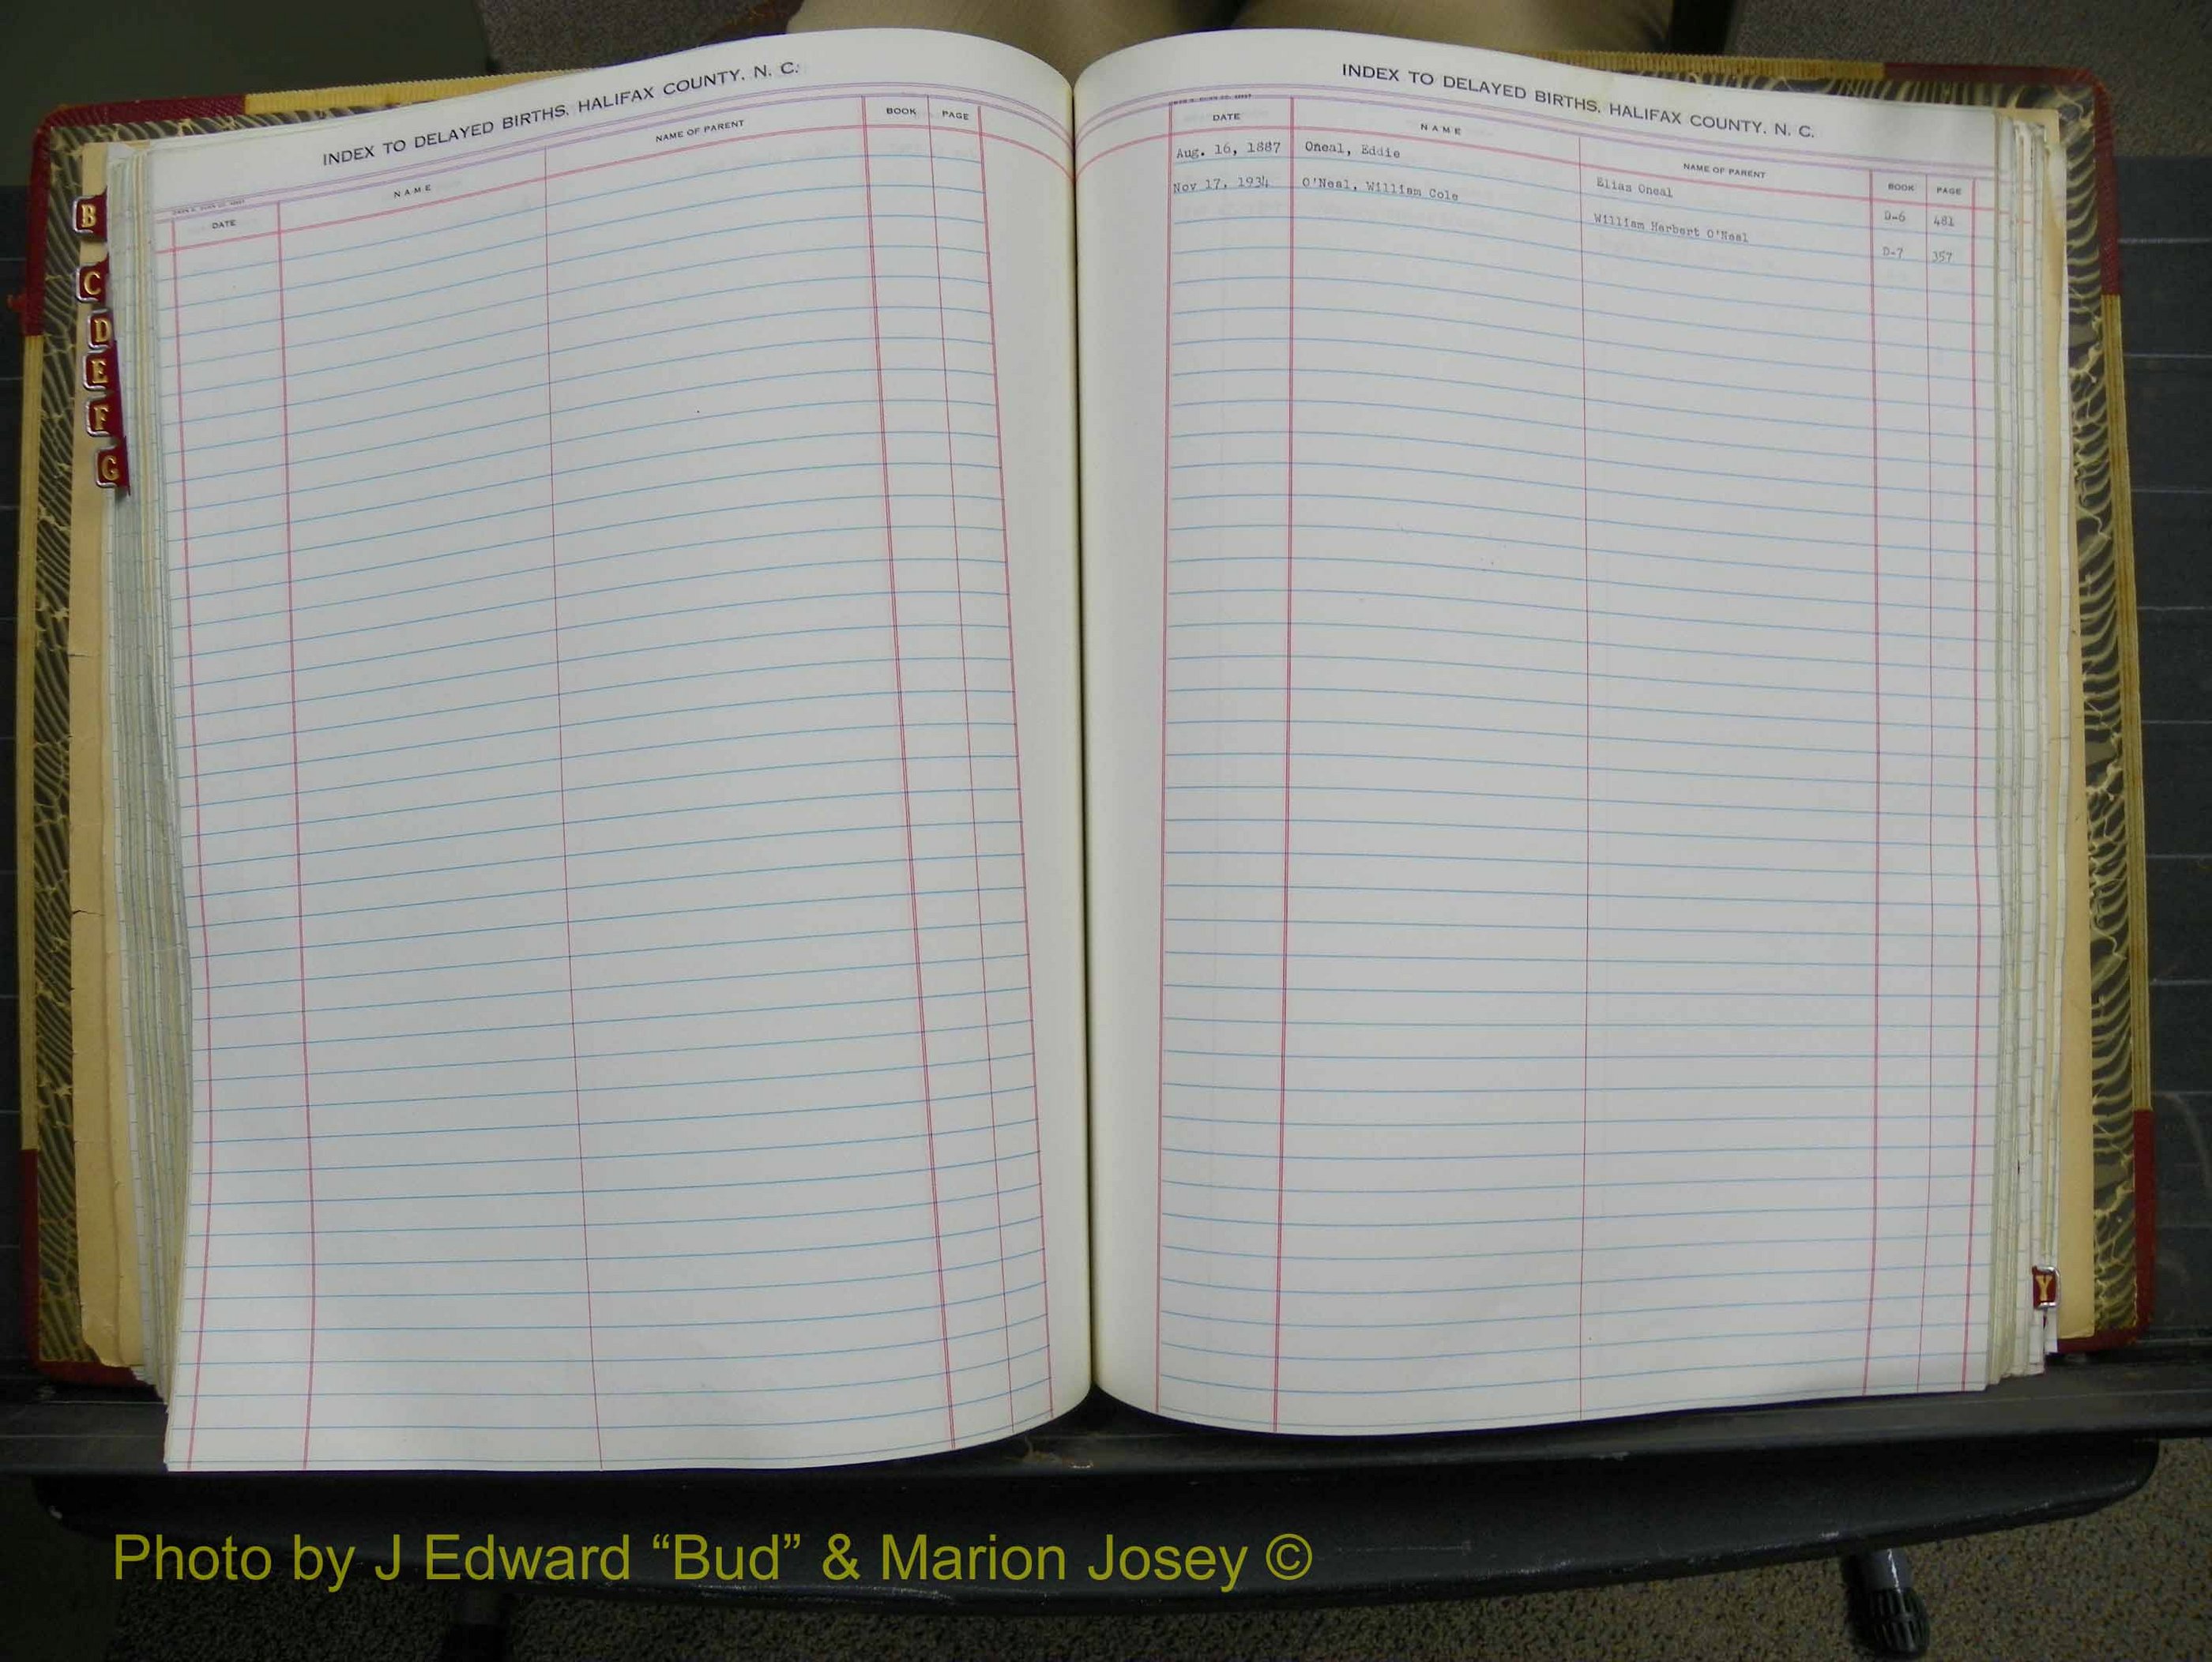 INDEX TO DELAYED BIRTHS, HALIFAX COUNTY, N. C.
DATE NAME NAME OF PARENT BOOK PAGE
B
C
D
E
F
G
INDEX TO DELAYED BIRTHS, HALIFAX COUNTY, N. C.
DATE NAME NAME OF PARENT BOOK PAGE
Aug. 16, 1887 Oneal, Eddie Elias Oneal D-6 481
Nov 17, 1934 O'Neal, William Cole William Herbert O'Neal D-7 357
Y
Photo by J Edward “Bud” & Marion Josey ©